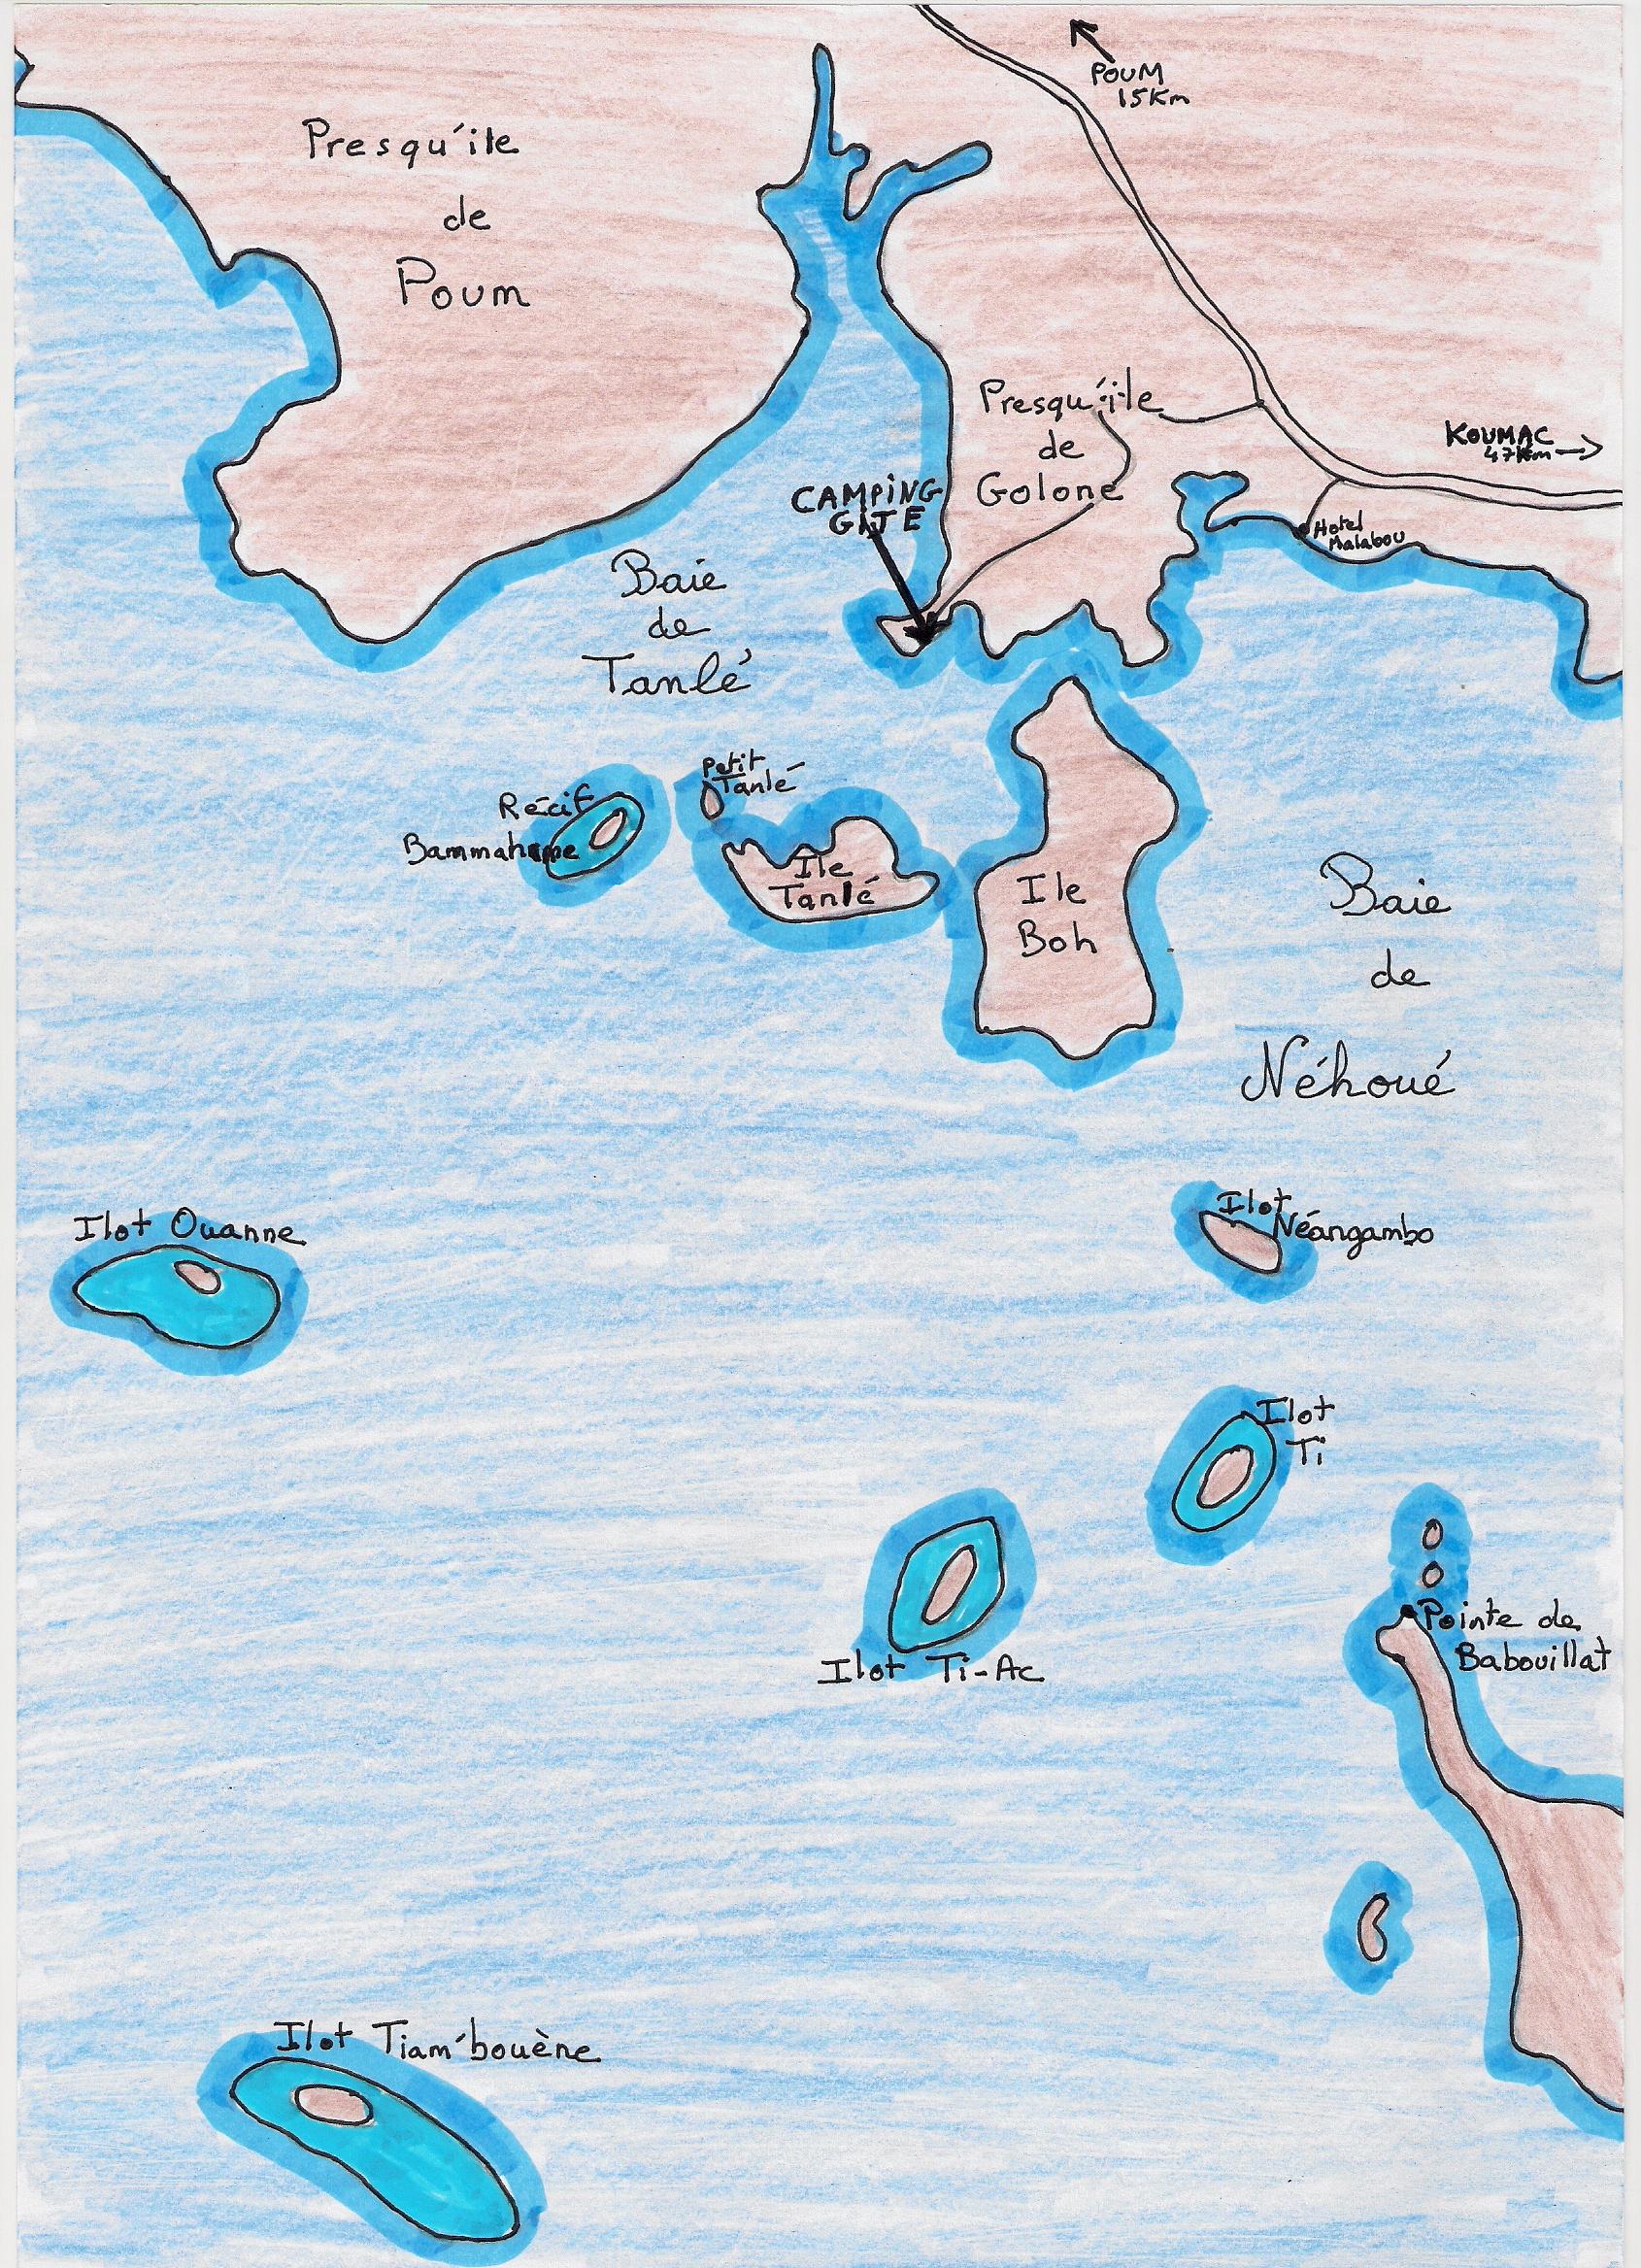 POUM
15Km
Presqu'ile
de
Poum
Presqu'ile
de
Golone
KOUMAC
47Km
CAMPING
GITE
Hotel
Malabou
Baie
de
Tanlé
Petit
Tanlé
Récif
Ile
Tanlé
Ile
Boh
Baie
de
Néhoué
Ilot Ouanne
Ilot
Néangambo
Ilot
Ti
Ilot Ti-Ac
Pointe de
Babouillat
Ilot Tiam'bouène